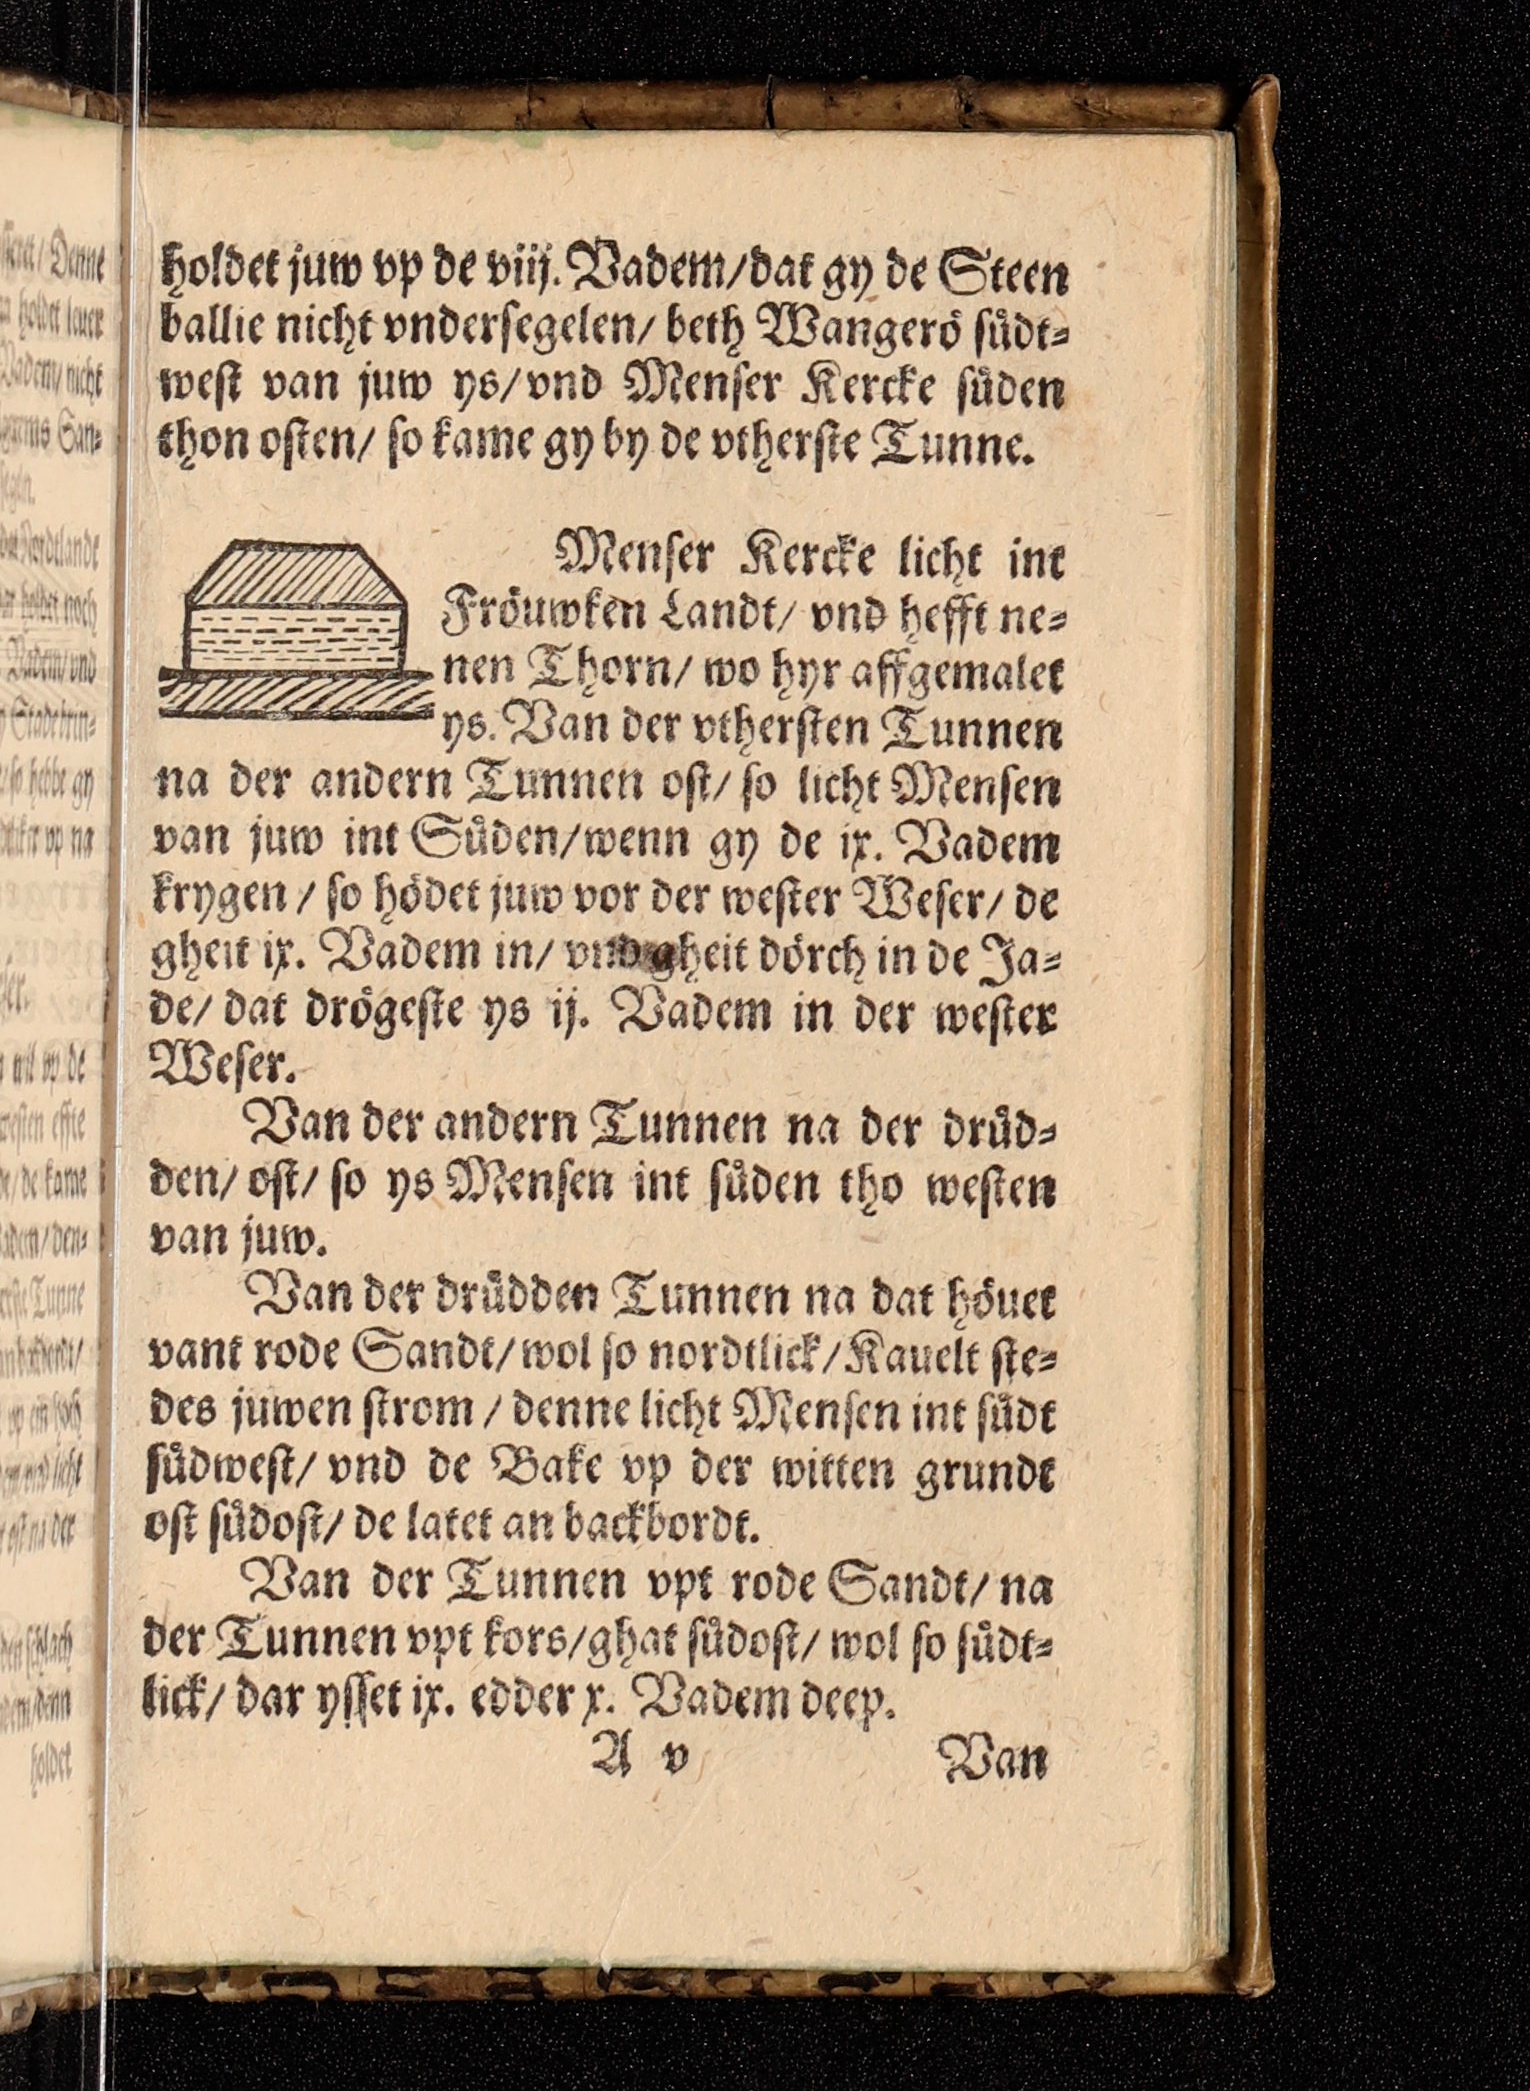 holdet juw vp de viij. Vadem/dat gy de Steen
ballie nicht vndersegelen/ beth Wangerö suͤdt⸗
west van juw ys/vnd Menser Kercke suͤden
thon osten/ so kame gy by de vtherste Tunne.
Menser Kercke licht int
Fröuwken Landt/ vnd hefft ne⸗
nen Thorn/ wo hyr affgemalet
ys. Van der vthersten Tunnen
na der andern Tunnen ost/ so licht Mensen
van juw int Suͤden/wenn gy de ix. Vadem
krygen / so hödet juw vor der wester Weser/ de
gheit ix. Vadem in/ vnd gheit dörch in de Ja⸗
de/ dat drögeste ys ij. Vadem in der wester
Weser.
Van der andern Tunnen na der druͤd⸗
den/ ost/ so ys Mensen int suͤden tho westen
van juw.
Van der druͤdden Tunnen na dat höuet
vant rode Sandt/wol so nordtlick/Kauelt ste⸗
des juwen strom / denne licht Mensen int suͤdt
suͤdwest/ vnd de Bake vp der witten grundt
ost suͤdost/ de latet an backbordt.
Van der Tunnen vpt rode Sandt/ na
der Tunnen vpt kors/ghat suͤdost/ wol so suͤdt⸗
lick/ dar ysset ix. edder x. Vadem deep.
A v
Van